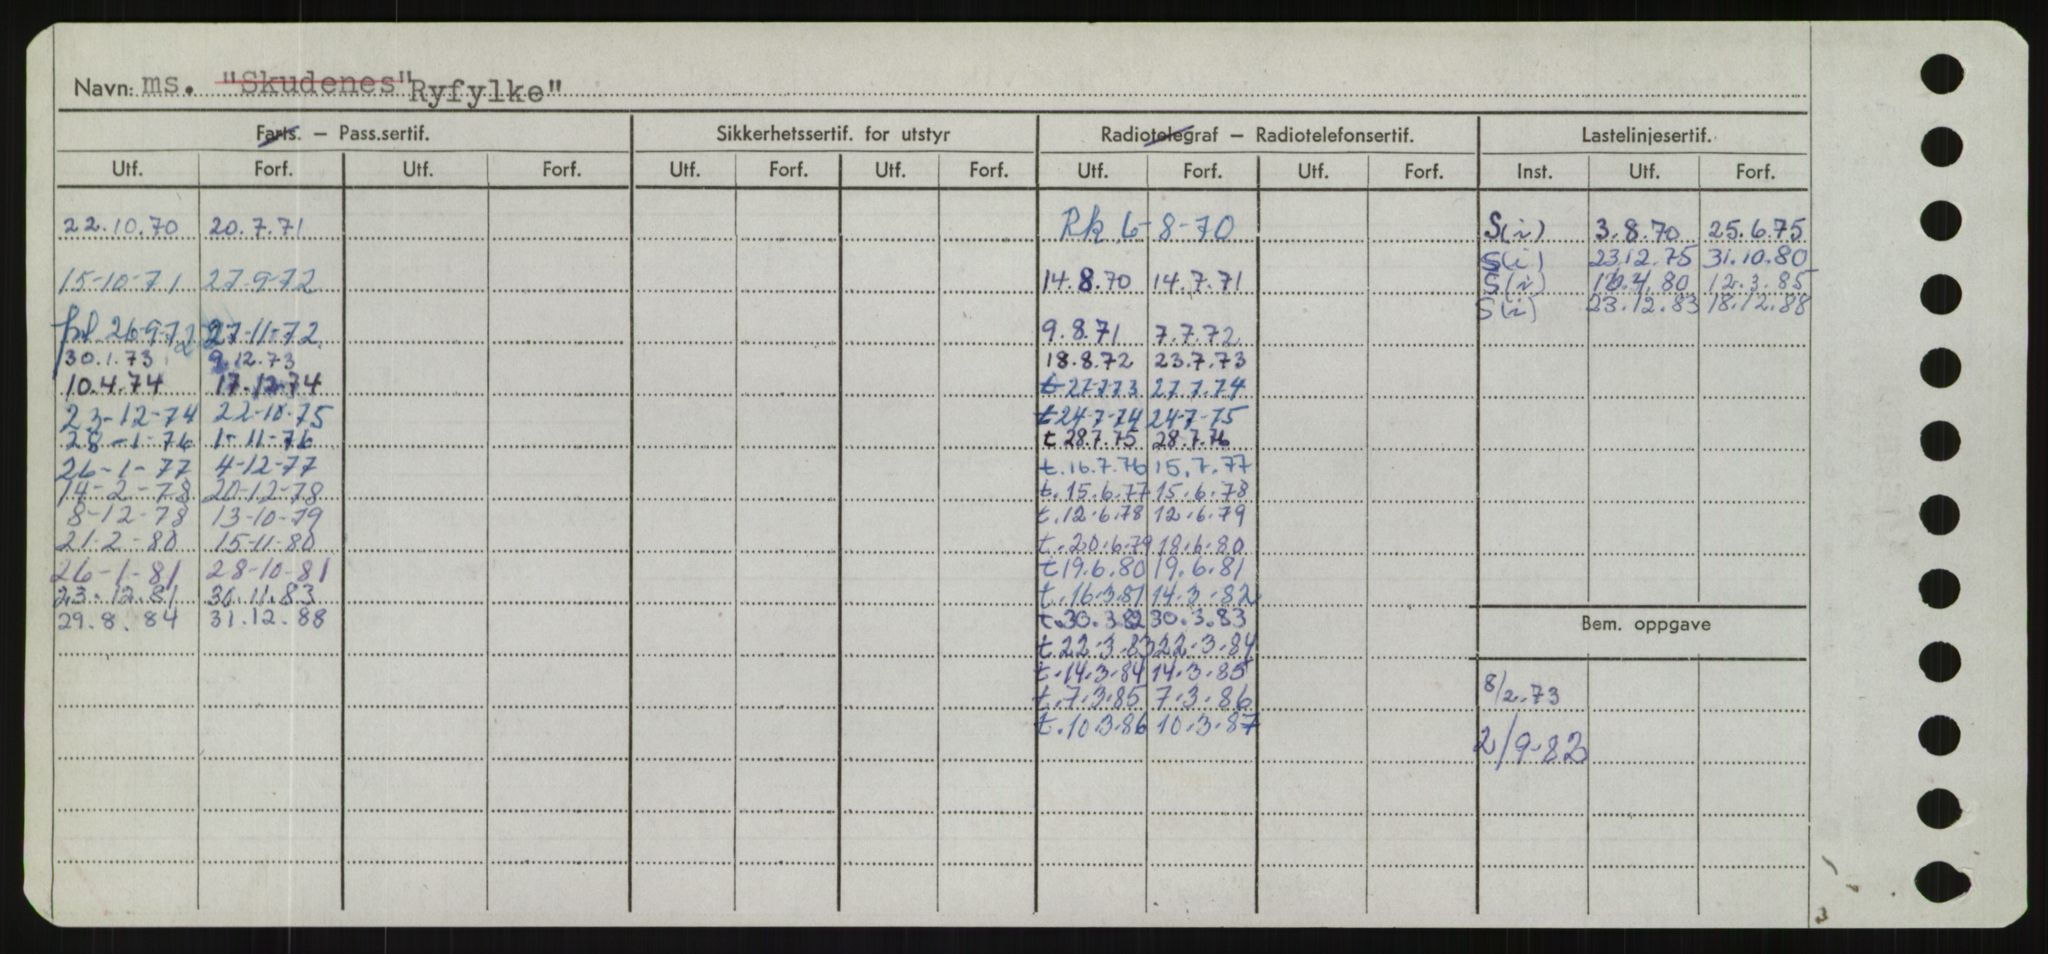 Navn: ms. "Skudenes" Ryfylke"
Farts. – Pass.sertif. Sikkerhetssertif. for utstyr Radiotelegraf – Radiotelefonsertif. Lastelinjesertif.
Utf. Forf. Utf. Forf. Utf. Forf. Utf. Forf. Utf. Forf. Utf. Forf. Inst. Utf. Forf.
22.10.70 20.7.71 Rk 6-8-70 S(i) 3.8.70 25.6.75
S(i) 23.12.75 31.10.80
15-10-71 27-9-72 14.8.70 14.7.71 S(i) 10.4.80 12.3.85
S(i) 23.12.83 18.12.88
26-9-72 27-11-72 9.8.71 7.7.72
30.1.73 9.12.73 18.8.72 23.7.73
10.4.74 17.12.74 t-27-7-73 27.7.74
23-12-74 22-10-75 t24-7-74 24-7-75
28-1-76 1-11-76 t.28.7.75 28.7.76
26-1-77 4-12-77 t.16.7.76 15.7.77
14-2-78 20-12-78 t.15.6.77 15.6.78
8-12-78 13-10-79 t.12.6.78 12.6.79
21-2-80 15-11-80 t.20.6.79 18.6.80
26-1-81 28-10-81 t19.6.80 19.6.81
23.12.81 30.11.83 t.16.3.81 14.3.82
29.8.84 31.12.88 t.30.3.82 30.3.83
Bem. oppgave
t.22.3.83 22.3.84
t.14.3.84 14.3.85
t.7.3.85 7.3.86 8/2.73
t.10.3.86 10.3.87
2/9-82